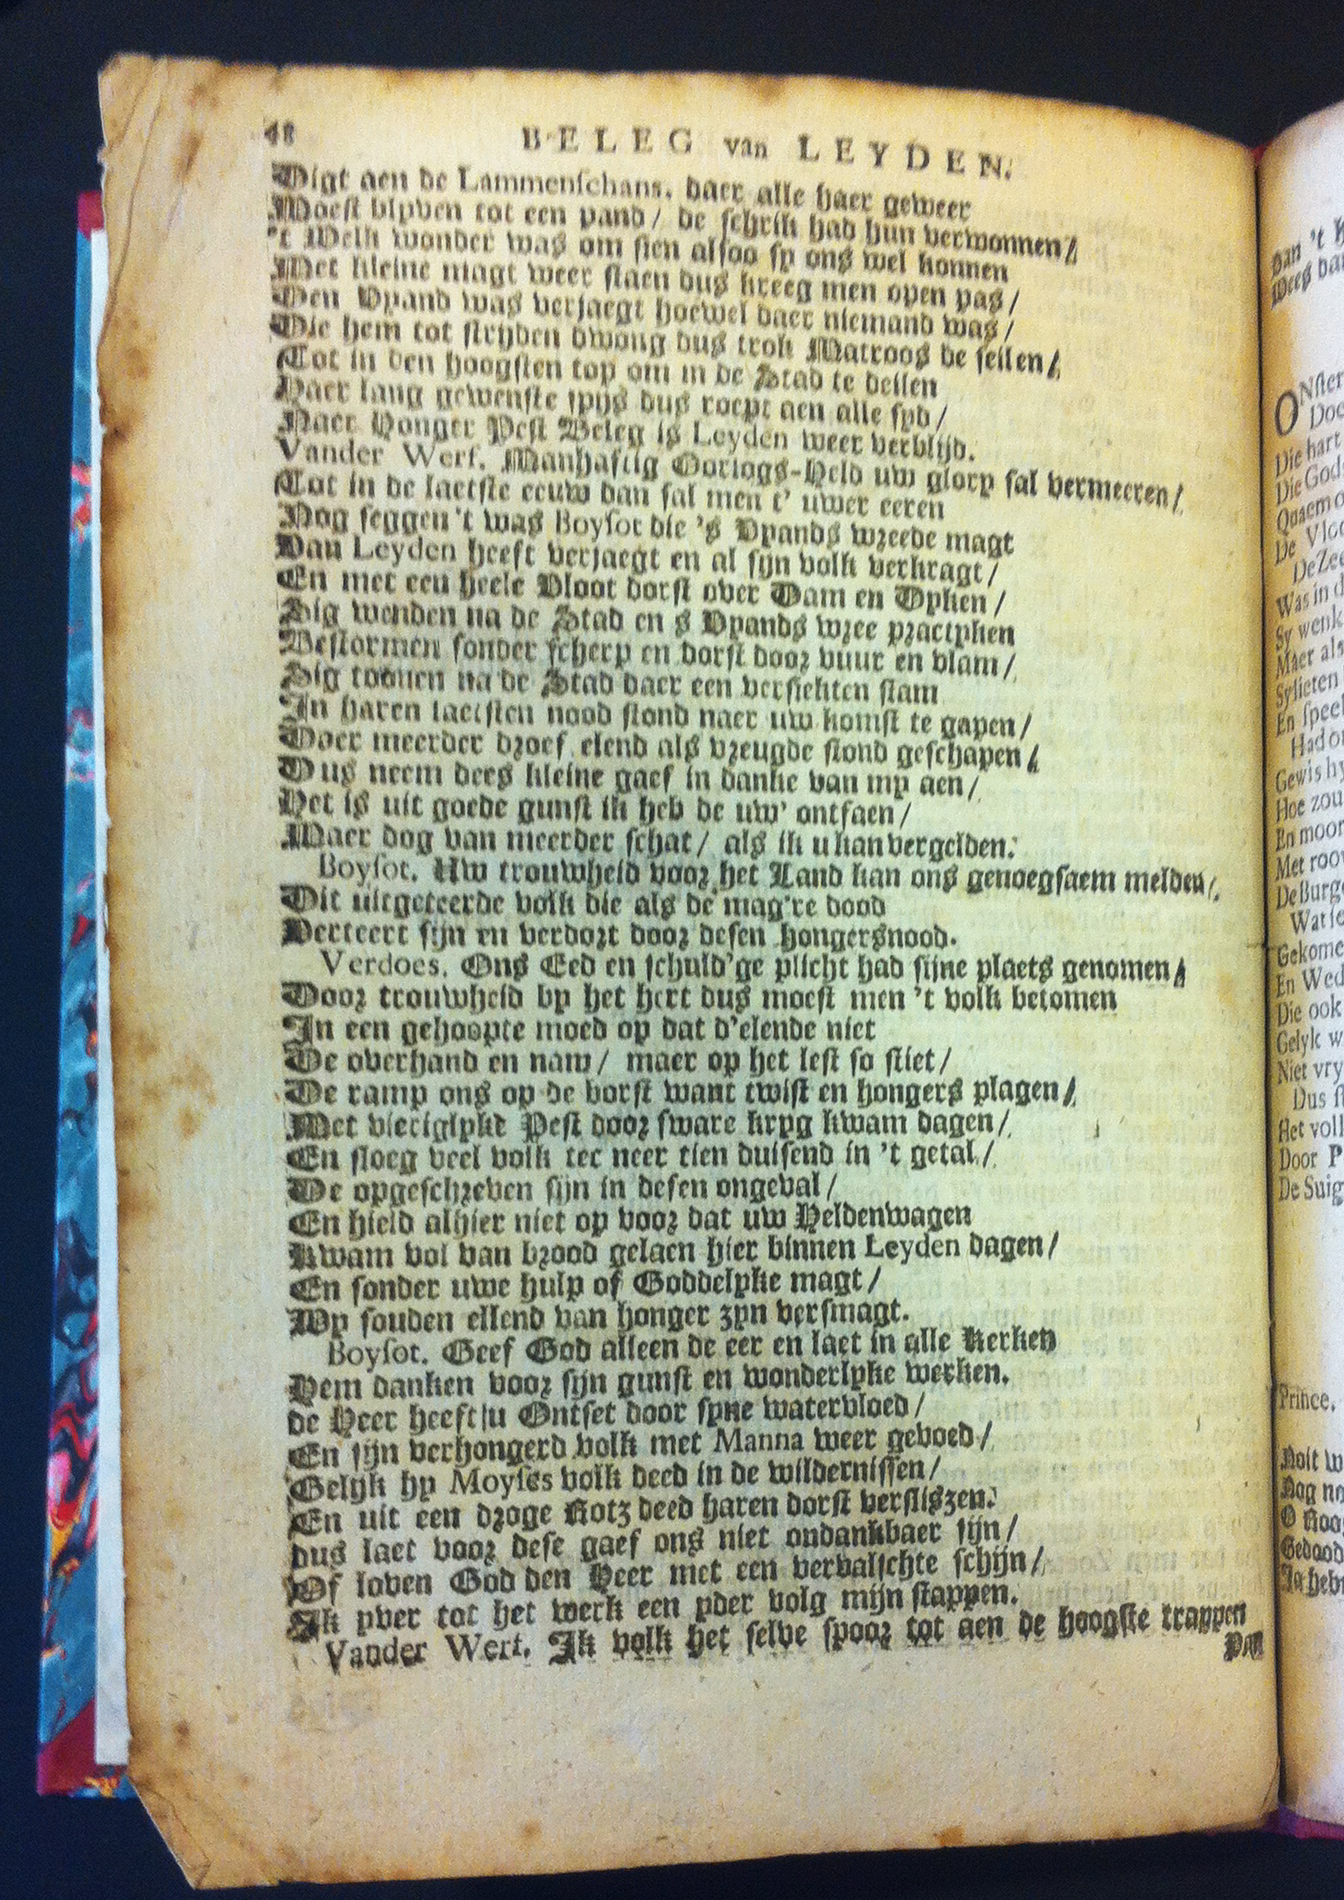 48 BELEG van LEYDEN.
Digt aen de Lammenschans. daer alle haer geweer
Moest blyven tot een pand / de schrik had hun verwonnen /
't Welk wonder was om sien alsoo sy ons wel konnen
Met kleine magt weer staen dus kreeg men open pas /
Den Vyand was verjaegt hoewel daer niemand was /
Die hem tot stryden dwong dus trok Matroos de seilen /
Tot in den hoogsten top om in de Stad te deilen
Haer lang gewenste spijs dus roept aen alle syd /
Naer Honger Pest Beleg is Leyden weer verblijd.
Vander Werf. Manhaftig Oorlogs-Held uw glory sal vermeeren /
Tot in de laetste eeuw dan sal men t' uwer eeren
Nog seggen 't was Boysot die 's Vyands wreede magt
Van Leyden heeft verjaegt en al sijn volk verkragt /
En met een heele Vloot dorst over Dam en Dyken /
Sig wenden na de Stad en s Vyands wree practyken
Bestormen sonder scherp en dorst door vuur en vlam /
Sig toonen na de Stad daer een versiekten stam
In haren laetsten nood stond naer uw komst te gapen /
Daer meerder droef elend als vreugde stond geschapen /
Dus neem dees kleine gaef in danke van my aen /
Het is uit goede gunst ik heb de uw' ontfaen /
Maer dog van meerder schat / als ik u kan vergelden.
Boysot. Uw trouwheid voor het Land kan ons genoegsaem melden /
Dit uitgeteerde volk die als de mag're dood
Verteert sijn en verdort door desen hongersnood.
Verdoes. Ons Eed en schuld'ge plicht had sijne plaets genomen /
Door trouwheid by het hert dus moest men 't volk betomen
In een gehoopte moed op dat d'elende niet
De overhand en nam / maer op het lest so stiet /
De ramp ons op de borst want twist en hongers plagen /
Met vieriglyke Pest door sware kryg kwam dagen /
En sloeg veel volk ter neer tien duisend in 't getal /
De opgeschreven sijn in desen ongeval /
En hield alhier niet op voor dat uw Heldenwagen
Kwam vol van brood gelaen hier binnen Leyden dagen /
En sonder uwe hulp of Goddelyke magt /
Wy souden ellend van honger zyn versmagt.
Boysot. Geef God alleen de eer en laet in alle Kerken
Hem danken voor sijn gunst en wonderlyke werken.
de Heer heeft u Ontset door syne watervloed /
En sijn verhongerd volk met Manna weer gevoed /
Gelijk hy Moyses volk deed in de wildernissen /
En uit een droge Rotz deed haren dorst versliszen.
dus laet voor dese gaef ons niet ondankbaer sijn /
Of loven God den Heer met een vervalschte schijn /
Ik yver tot het werk een yder volg mijn stappen.
Vander Werf. Ik volk het selve spoor tot aen de hoogste trappen
Van 't
Wees
ONster
Die hart
Die God
Quaem
De Vlo
De Zee
Was in d
Sy wenk
Maer als
Sy lieten
En speel
Had o
Gewis hy
Hoe zou
En moor
Met roo
De Burg
Gekome
En Wed
Die ook
Gelyk w
Niet vry
Dus
Het voll
Door P
De Suig
Prince,
Noit w
Nog no
O Koo
Gedood